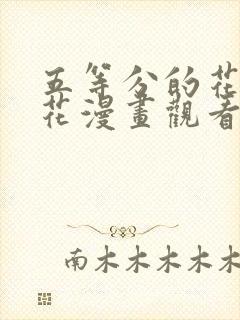 五等分的花
花漫畫觀看
南木木木木木